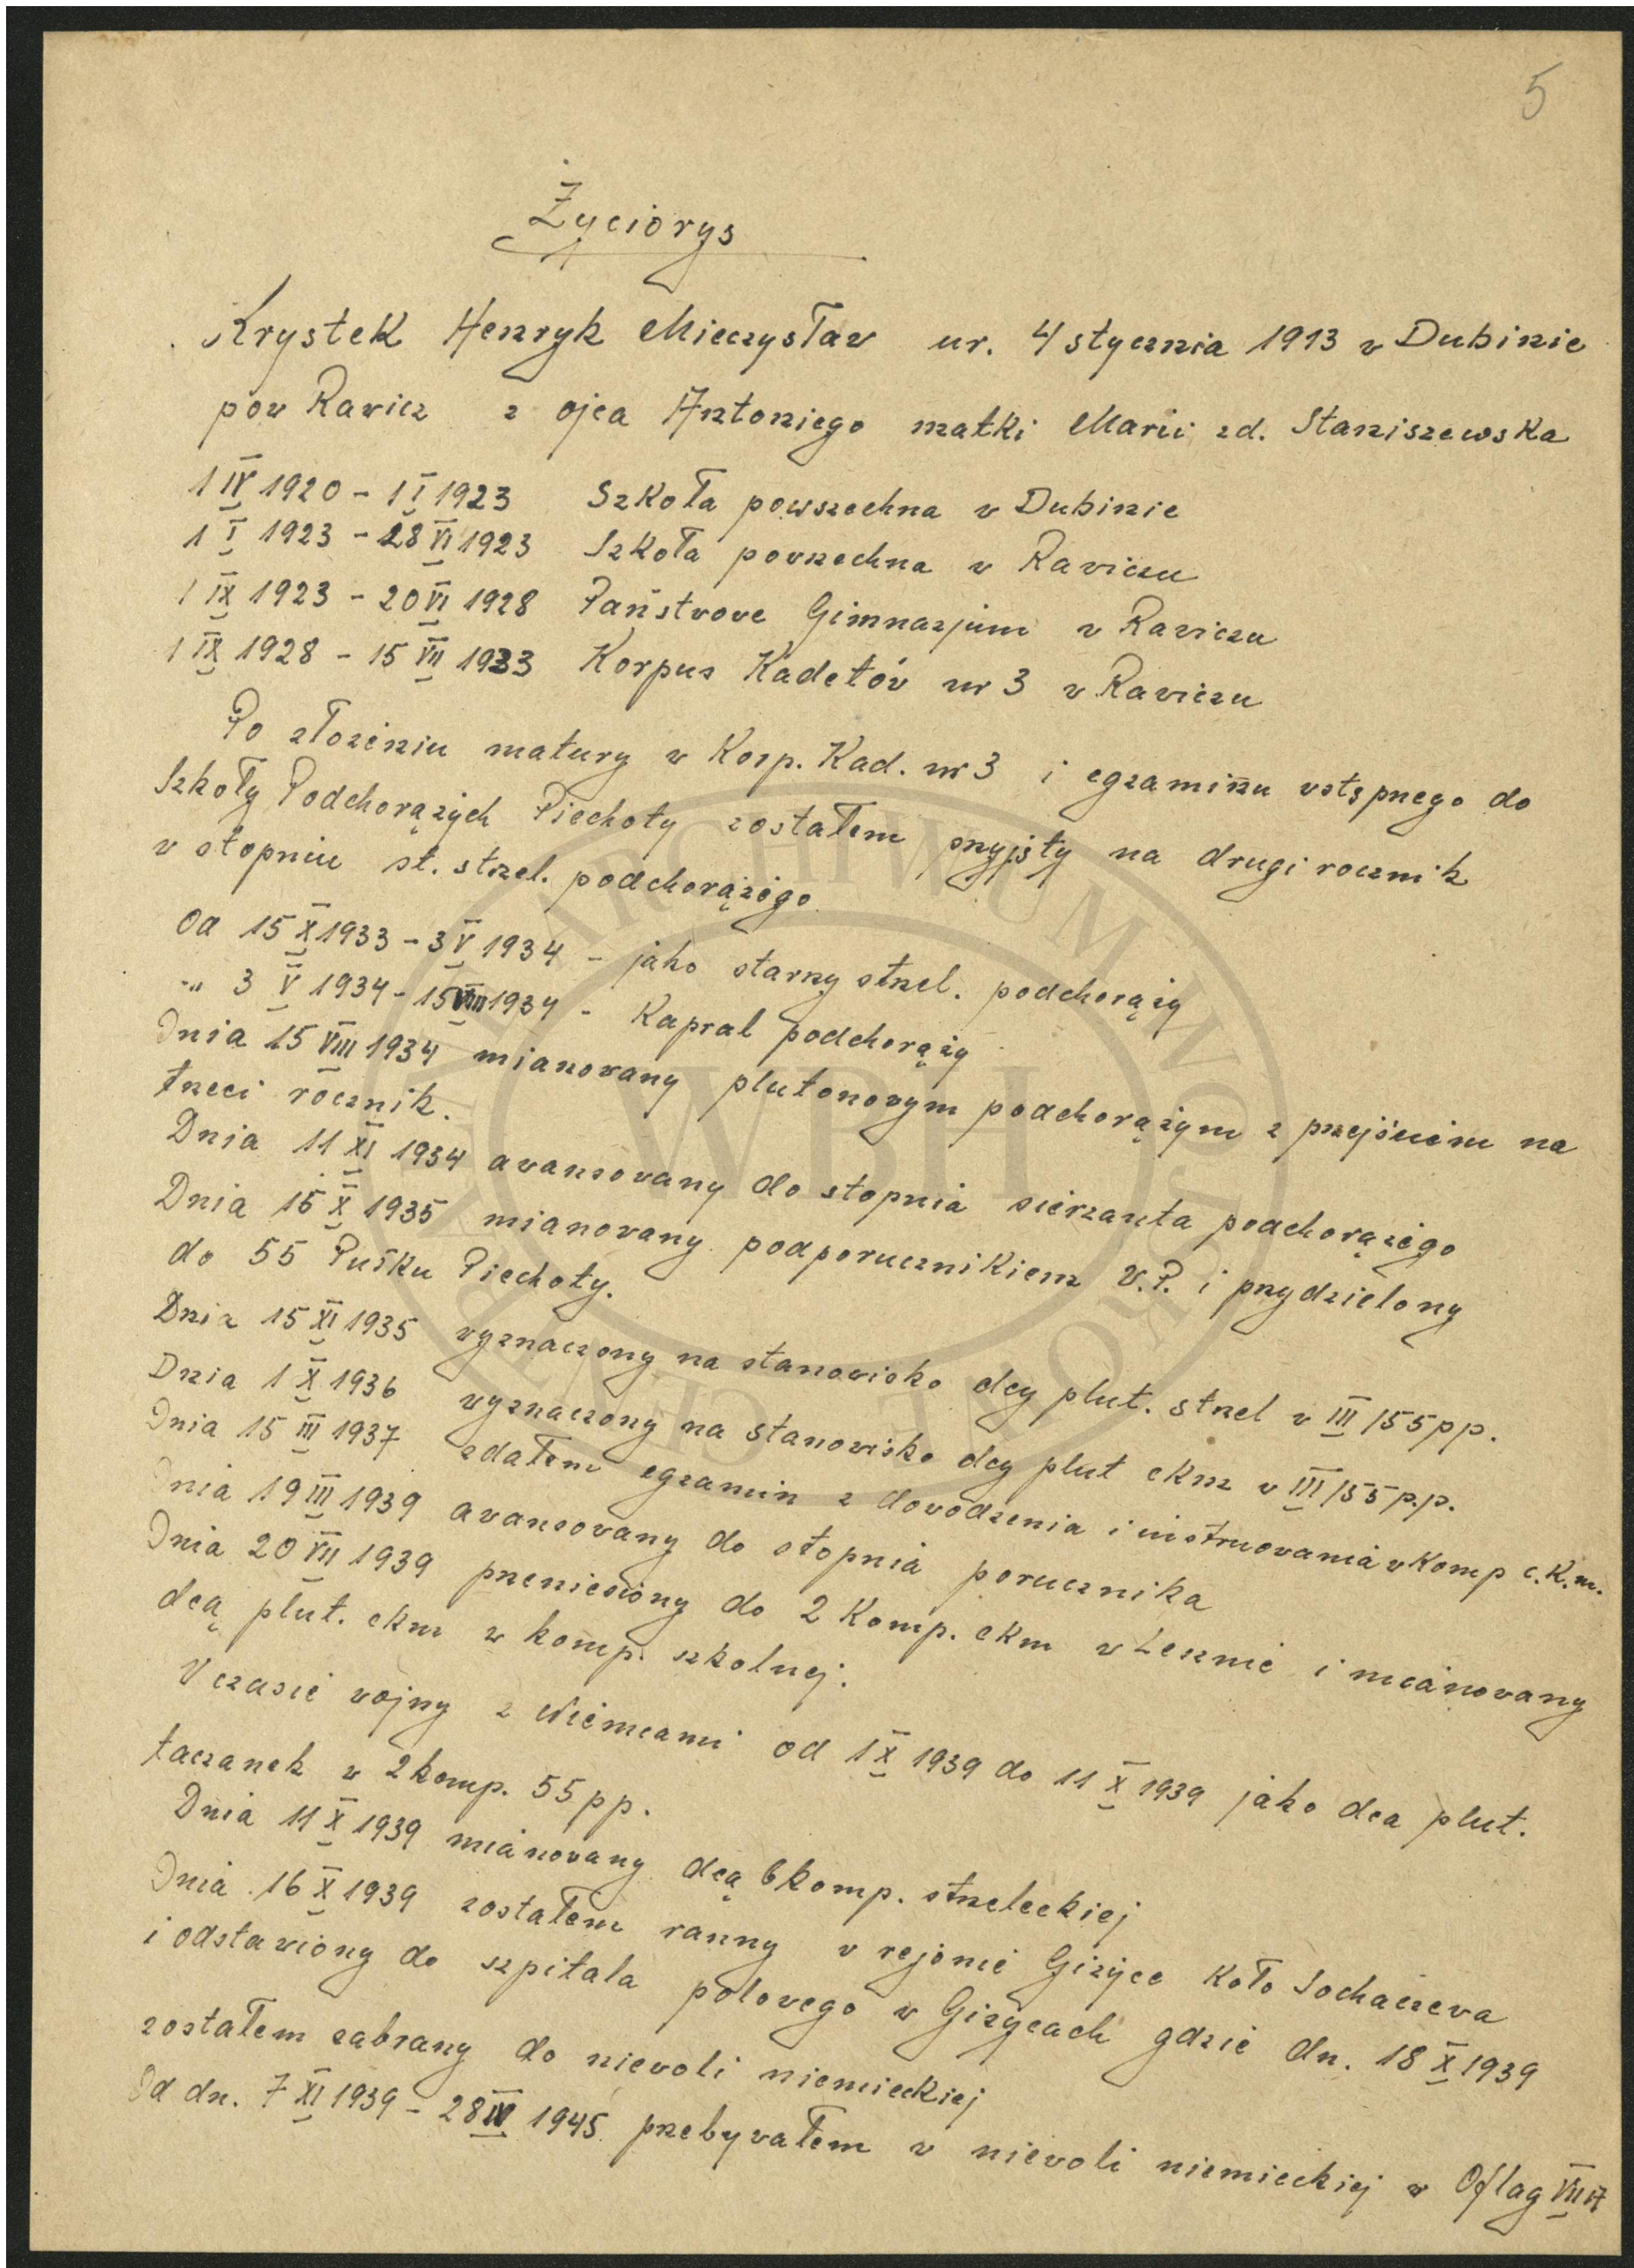 5
Życiorys
Krystek Henryk Mieczysław ur. 4 stycznia 1913 w Dubinie
pow Rawicz z ojca Antoniego matki Marii zd. Staniszewska
1 IV 1920 - 1 I 1923 Szkoła powszechna w Dubinie
1 I 1923 - 28 VI 1923 Szkoła powszechna w Rawiczu
1 IX 1923 - 20 VI 1928 Państwowe Gimnazjum w Rawiczu
1 IX 1928 - 15 VII 1933 Korpus Kadetów nr 3 w Rawiczu
Po złożeniu matury w Korp. Kad. nr 3 i egzaminu wstępnego do
Szkoły Podchorążych Piechoty zostałem przyjęty na drugi rocznik
w stopniu st. strzel. podchorążego
Od 15 X 1933 - 3 V 1934 - jako starszy strzel. podchorąży
-" 3 V 1934 - 15 VIII 1934 - Kapral podchorąży
Dnia 15 VIII 1934 mianowany plutonowym podchorążym z przejściem na
trzeci rocznik.
Dnia 11 XI 1934 awansowany do stopnia sierżanta podchorążego
Dnia 15 X 1935 mianowany podporucznikiem W.P. i przydzielony
do 55 Pułku Piechoty.
Dnia 15 XI 1935 wyznaczony na stanowisko dcy plut. strzel w III/55 pp.
Dnia 1 X 1936 wyznaczony na stanowisko dcy plut ckm w III/55 p.p.
Dnia 15 III 1937 zdałem egzamin z dowodzenia i instruowania w Komp c.k.m.
Dnia 19 III 1939 awansowany do stopnia porucznika
Dnia 20 VII 1939 przeniesiony do 2 Komp. ckm w Lesznie i mianowany
dcą plut. ckm w komp. szkolnej.
W czasie wojny z Niemcami od 1 X 1939 do 11 X 1939 jako dca plut.
taczanek w 2 komp. 55 pp.
Dnia 11 X 1939 mianowany dcą 6 komp. strzeleckiej
Dnia 16 X 1939 zostałem ranny w rejonie Giżyce Koło Sochaczewa
i odstawiony do szpitala polowego w Giżycach gdzie dn. 18 X 1939
zostałem zabrany do niewoli niemieckiej
Od dn. 7 XI 1939 - 28 IV 1945 przebywałem w niewoli niemieckiej w Oflag VII A
ARCHIWUM WOJSKOWE
WBH